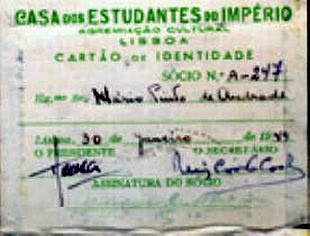 CASA DOS ESTUDANTES DO IMPÉRIO
AGREMIAÇÃO CULTURAL
LISBOA
CARTÃO DE IDENTIDADE
SÓCIO N.º A-247
Mário Pinto de Andrade
LISBOA, 30 de janeiro de 1949
O PRESIDENTE O SECRETÁRIO
ASSINATURA DO SÓCIO